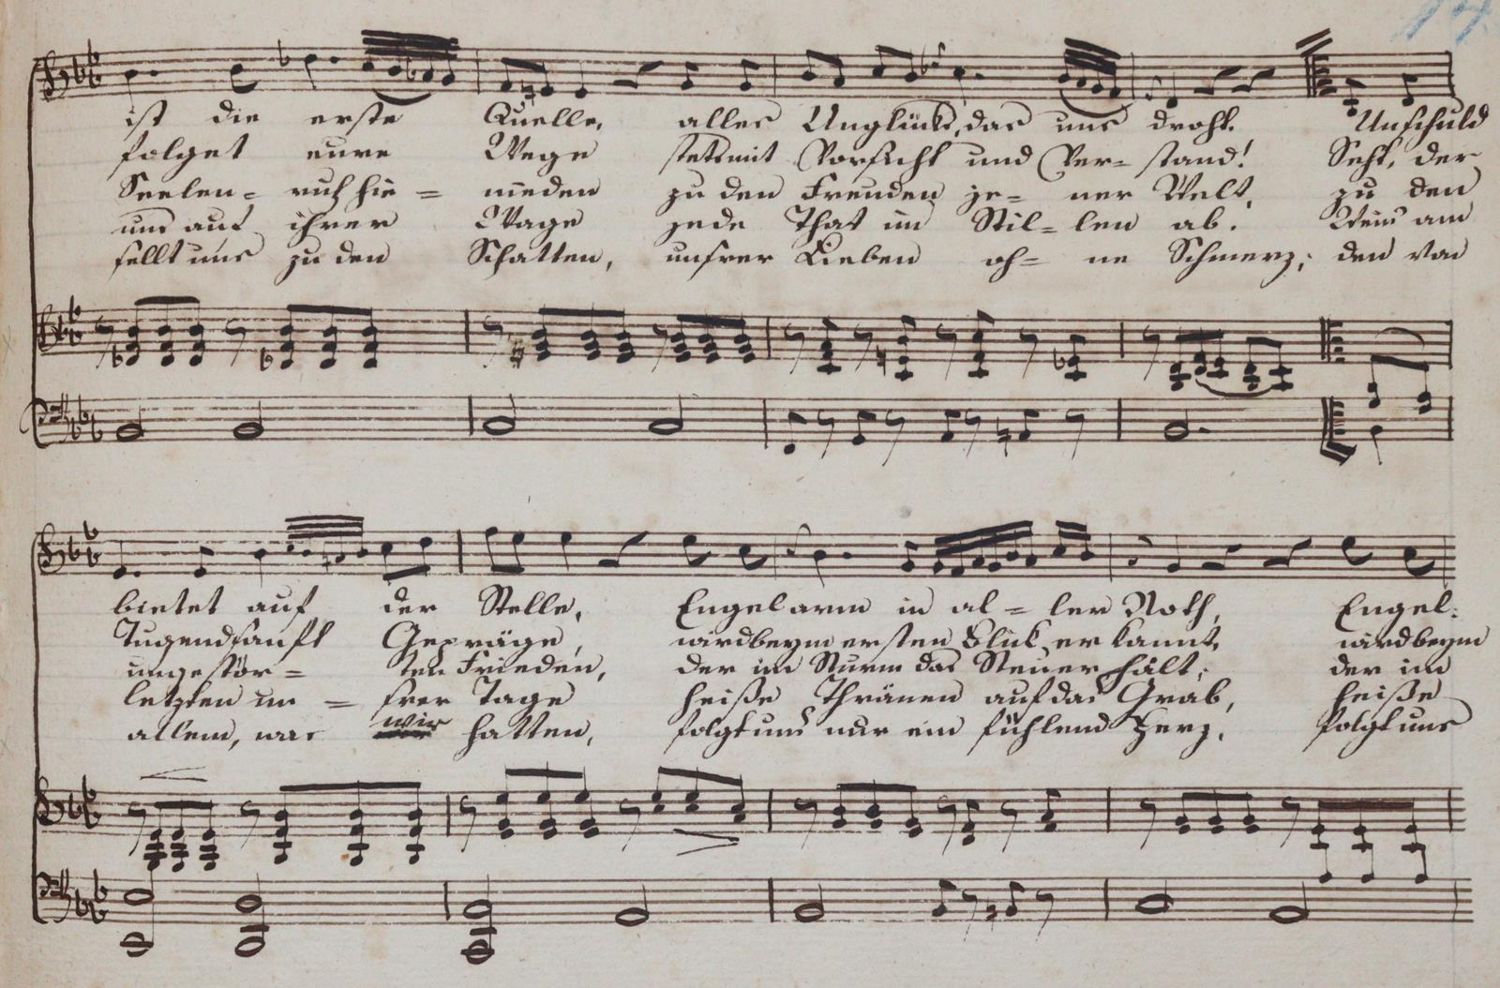 ist die erste Quelle, alles Unglücks, das uns droht. Unschuld
folget eure Wege stets mit Vorsicht und Ver- stand! Seht, der
Seelen- ruh hie- nieden zu den Freuden je- ner Welt, zu den
uns auf ihrer Wage jede That im Stil- len ab. Wenn am
sellt uns zu den Schatten, unsrer Lieben oh- ne Schmerz; den von
bietet auf der Stelle, Engelarm in al- ler Noth, Engel-
Tugend sanft Gepräge, wird beym ersten Blick er kannt, wird beym
ungestör- ten Frieden, der im Sturm das Steuer hält; der im
letzten un- srer Tage heiße Thränen auf das Grab, heiße
allem, was wir hatten, folgt uns nur ein fühlend Herz, folgt uns